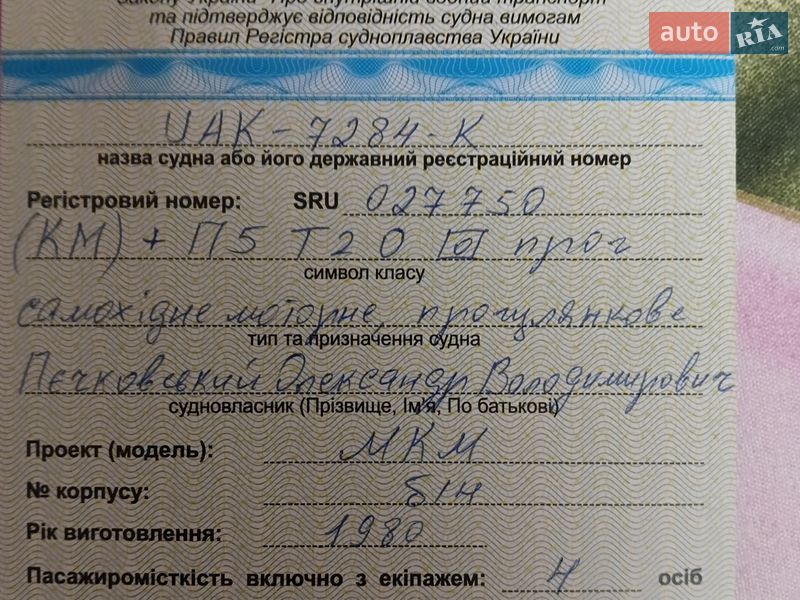 Закону України "Про внутрішній водний транспорт"
та підтверджує відповідність судна вимогам
Правил Регістра судноплавства України
auto RIA.com
UAK-7284-K
назва судна або його державний реєстраційний номер
Регістровий номер: SRU 027750
(КМ) + П5 Т20 прог
символ класу
самохідне моторне, прогулянкове
тип та призначення судна
Печковський Олександр Володимирович
судновласник (Прізвище, Ім'я, По батькові)
Проект (модель): МКМ
№ корпусу: б/н
Рік виготовлення: 1980
Пасажиромісткість включно з екіпажем: 4 осіб